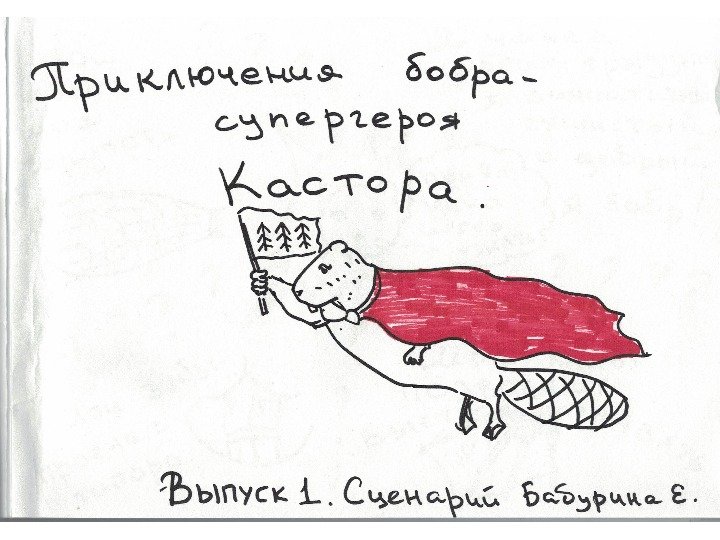 Приключения бобра-
супергероя
Кастора.
Выпуск 1. Сценарий Бабурина Е.